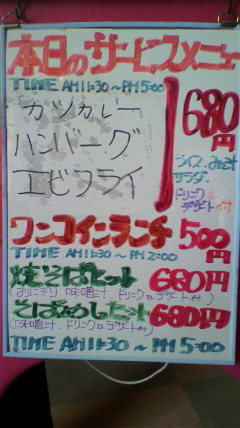 本日のサービスメニュー
TIME AM11:30～PM5:00
カツカレー
ハンバーグ
エビフライ
680円
ライス、みそ汁
サラダ、
ドリンク
デザート付
ワンコインランチ 500円
TIME AM11:30～PM2:00
焼そばセット 680円
(おにぎり、味噌汁、ドリンクorデザート付)
そばめしセット 680円
(味噌汁、ドリンクorデザート付)
TIME AM11:30～PM5:00